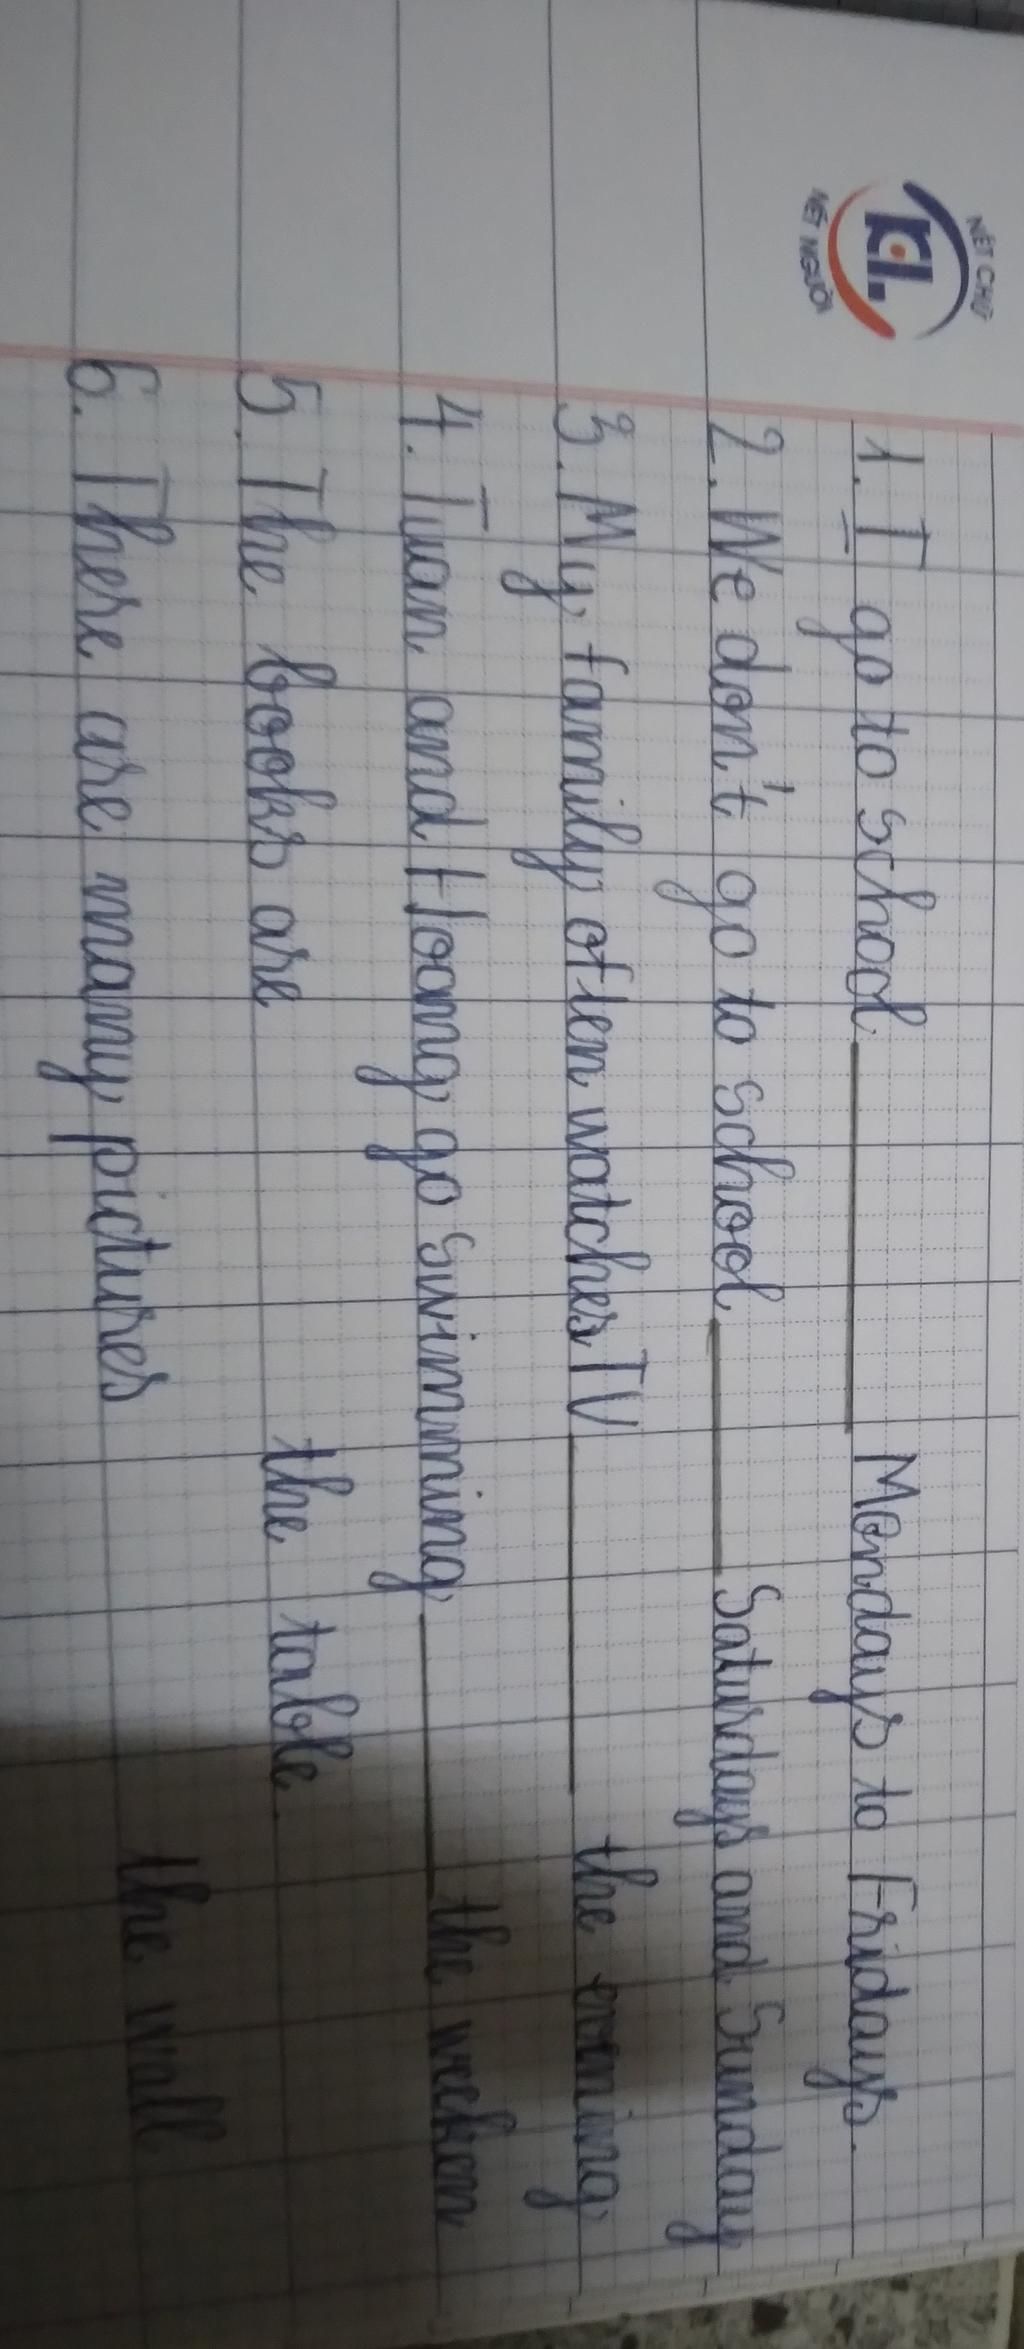 NÉT CHỮ
KL
NẾT NGƯỜI
1. I go to school ________ Mondays to Fridays.
2. We don't go to school ________ Saturdays and Sunday
3. My family often watches TV ________ the evening
4. Tuan and Hoang go swimming ________ the weeken
5. The books are the table.
6. There are many pictures the wall